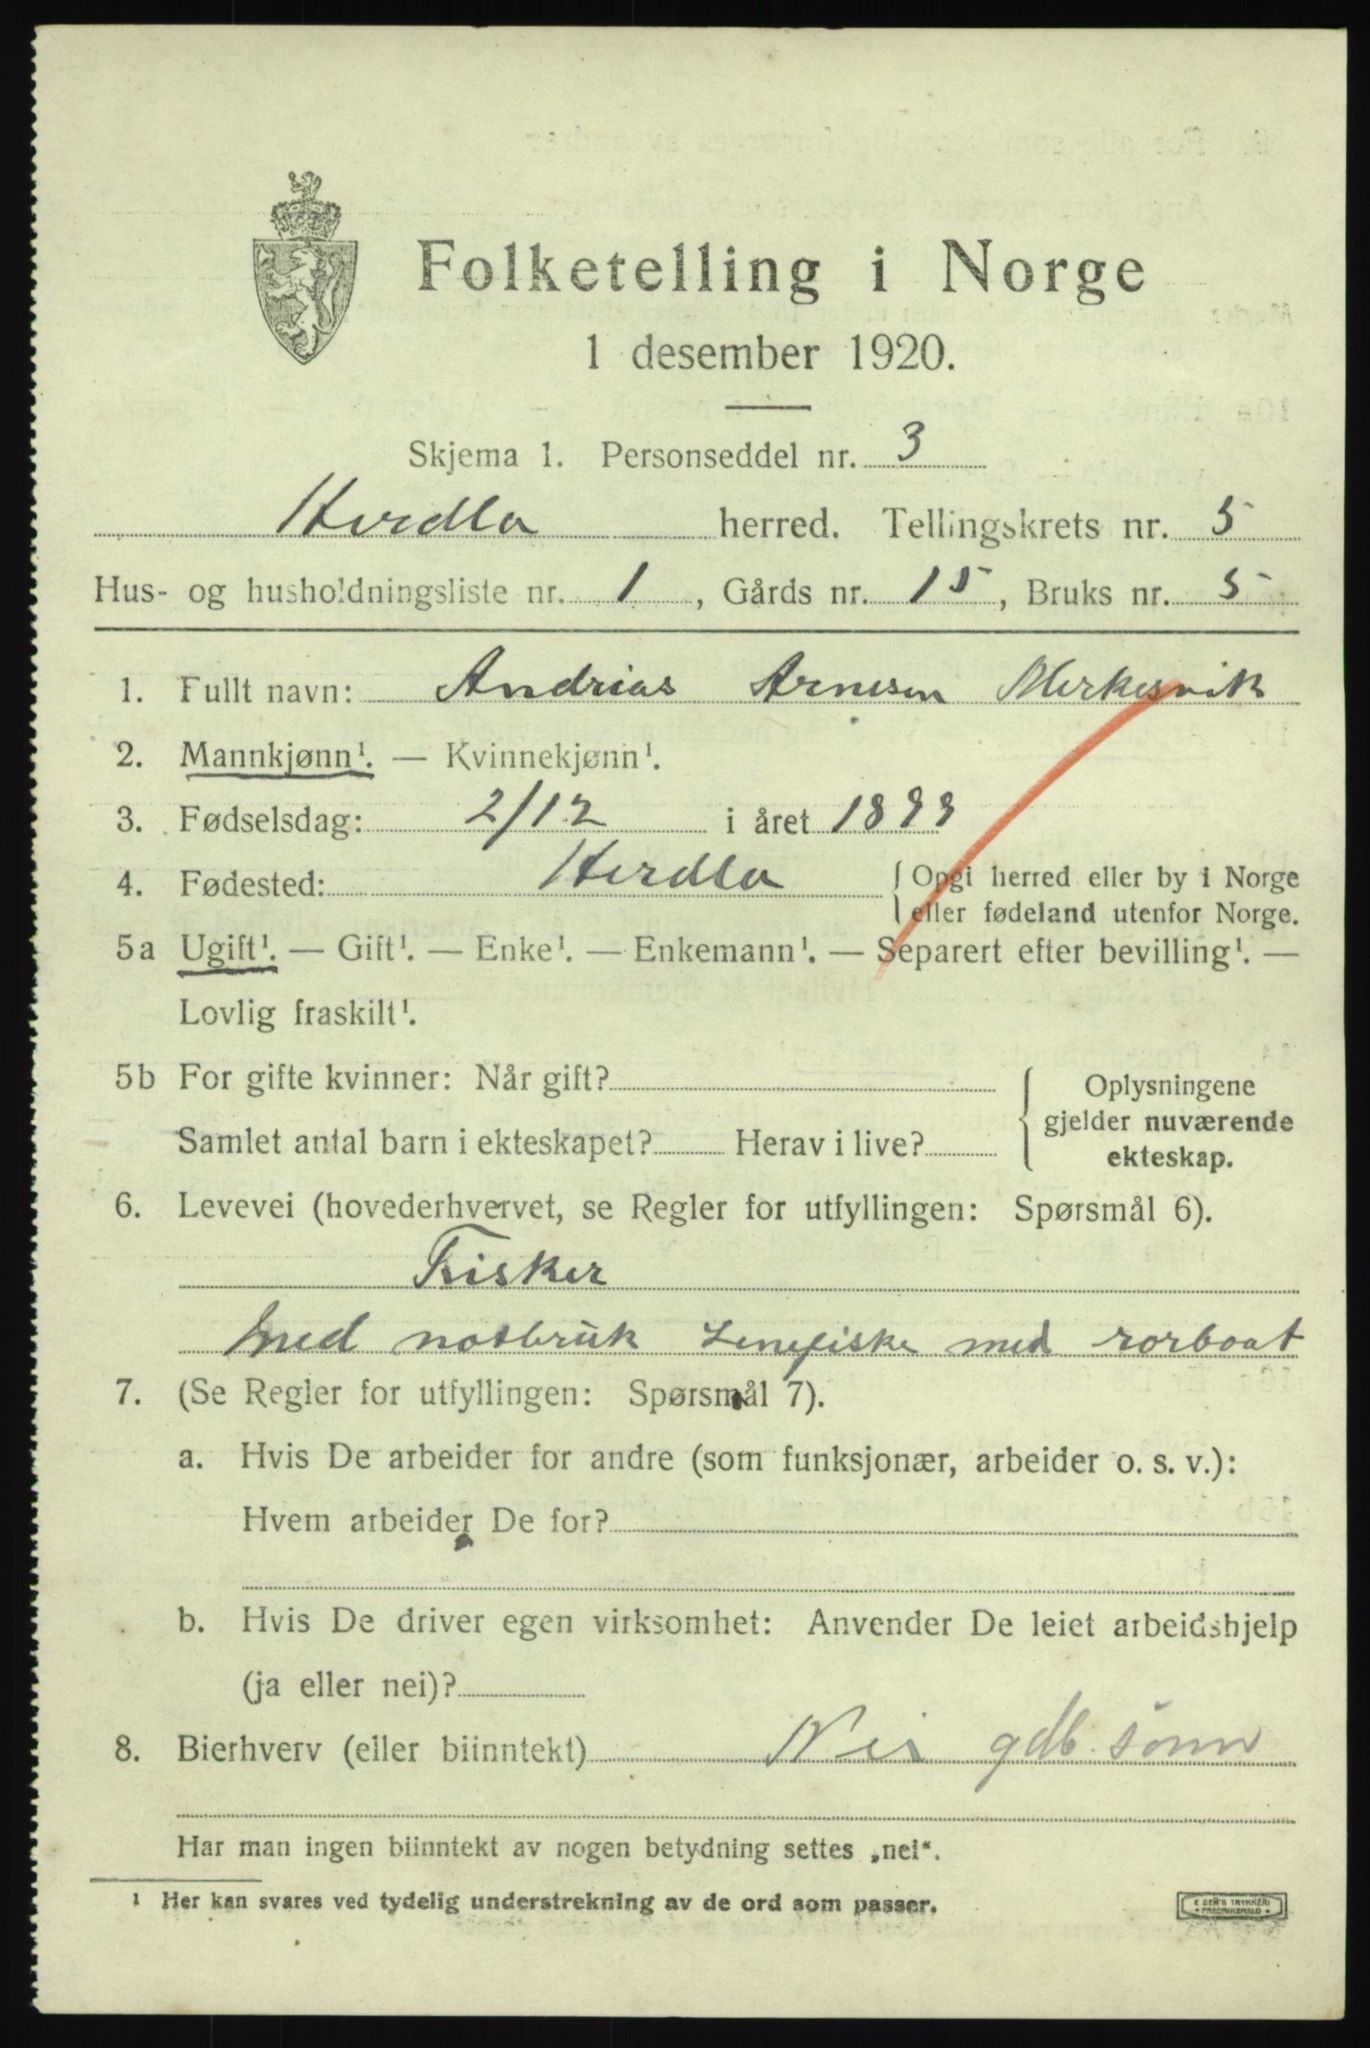 Folketelling i Norge
1 desember 1920.
Skjema 1. Personseddel nr. 3
Herdla herred. Tellingskrets nr. 5
Hus- og husholdningsliste nr. 1, Gårds nr. 15, Bruks nr. 5
1. Fullt navn: Andrias Arnesen Merkesvik
2. Mannkjønn¹. — Kvinnekjønn¹.
3. Fødselsdag: 2/12 i året 1899
4. Fødested: Herdla { Opgi herred eller by i Norge
eller fødeland utenfor Norge.
5a Ugift¹. — Gift¹. — Enke¹. — Enkemann¹. — Separert efter bevilling¹. —
Lovlig fraskilt¹.
5b For gifte kvinner: Når gift? { Oplysningene
gjelder nuværende
Samlet antal barn i ekteskapet? Herav i live? ekteskap.
6. Levevei (hovederhvervet, se Regler for utfyllingen: Spørsmål 6).
Fisker
med notbruk Linefiske med rorboat
7. (Se Regler for utfyllingen: Spørsmål 7).
a. Hvis De arbeider for andre (som funksjonær, arbeider o. s. v.):
Hvem arbeider De for?
b. Hvis De driver egen virksomhet: Anvender De leiet arbeidshjelp
(ja eller nei)?
8. Bierhverv (eller biinntekt) Nei gdb. sønn
Har man ingen biinntekt av nogen betydning settes „nei“.
¹ Her kan svares ved tydelig understrekning av de ord som passer.